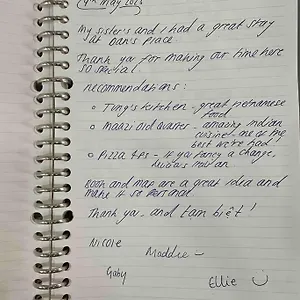 9th May 2023
My sister's and I had a great stay
at Dan's place.
Thank you for making our time here
so special.
Recommendations:
o Tung's kitchen - great vietnamese
food
o Maazi - amazing indian
cuisine - one of the
best we're had!
o Pizza 4ps - if you fancy a change,
Italian.
Book and map are a great idea and
make it so personal
Thank you, and tam biêt!
Nicole
Maddie
Gaby
Ellie